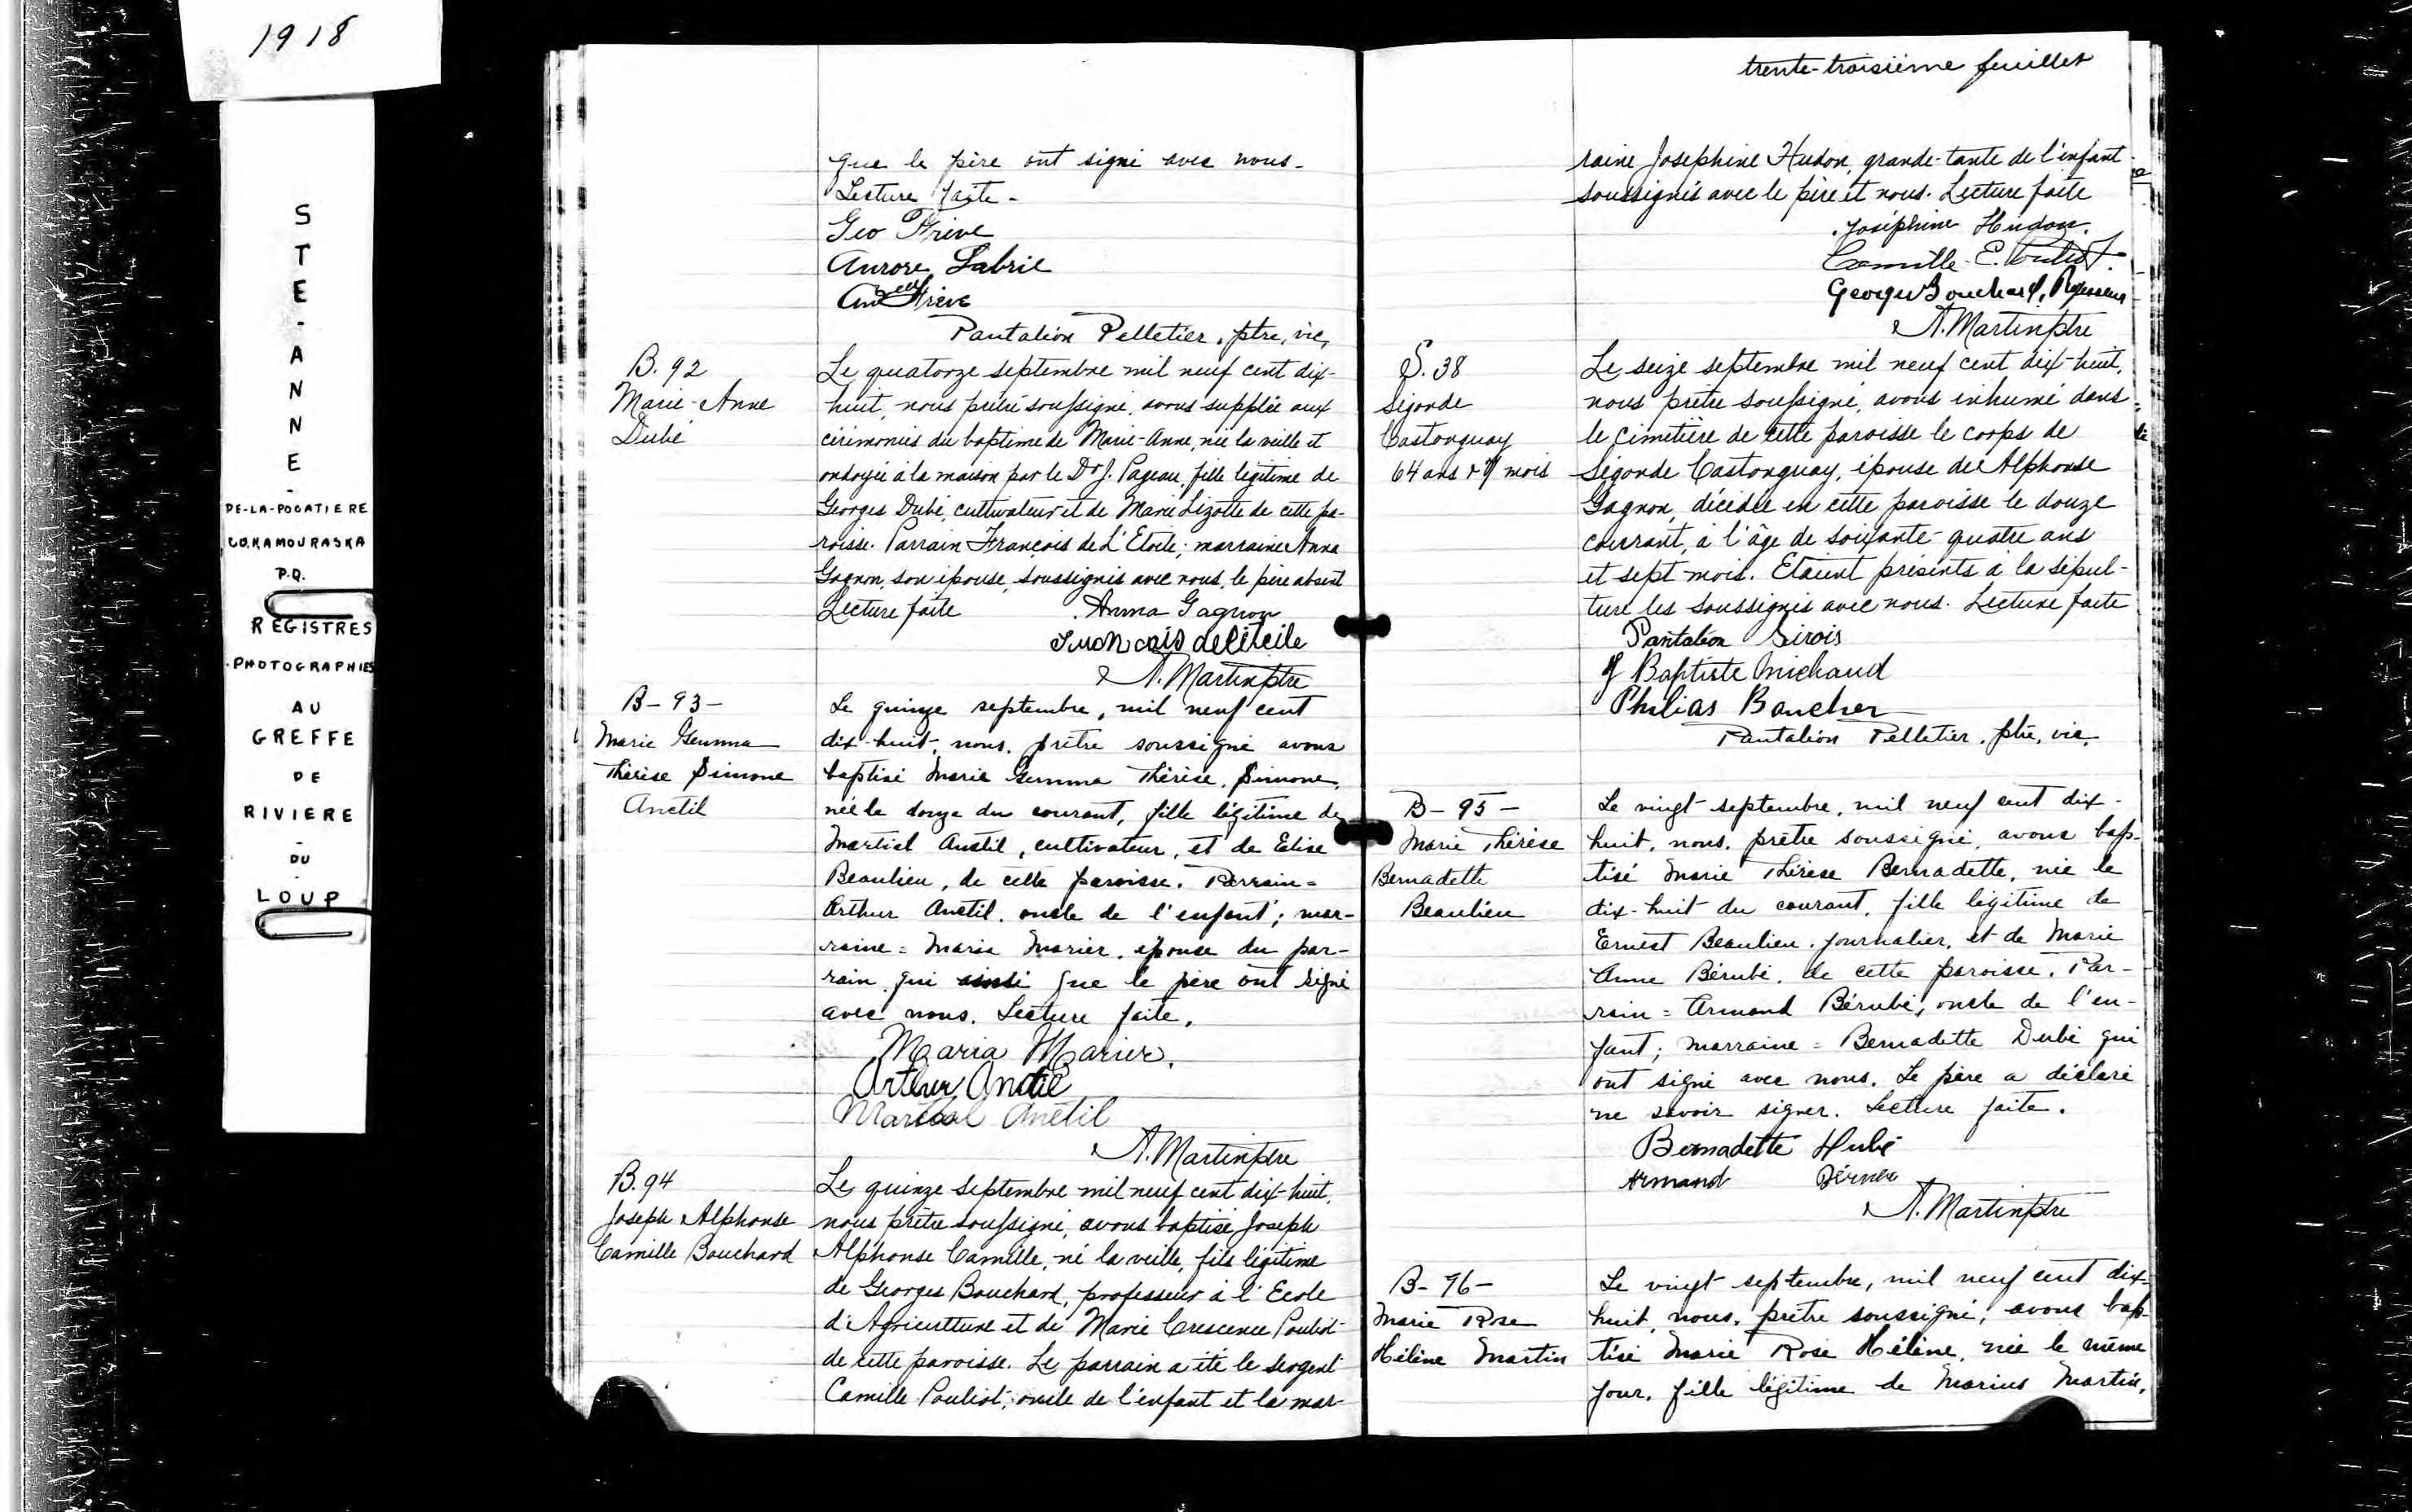 1918
STE-ANNE-
DE-LA-POCATIERE
CO. KAMOURASKA
P.Q.
REGISTRES
PHOTOGRAPHIES
AU
GREFFE
DE
RIVIERE
-
DU
-
LOUP
que le père ont signé avec nous.
Lecture faite.
Geo Grève
Aurore Labrie
Pantaléon Pelletier, ptre, vic.
B. 92
Marie-Anne
Dubé
Le quatorze septembre mil neuf cent dix-
huit, nous prêtre soussigné, avons supplée aux
cérémonies du baptême de Marie-Anne, née la veille et
ondoyée à la maison par le Dr J. Pageau, fille légitime de
Georges Dubé, cultivateur et de Marie Lizotte de cette pa-
roisse. Parrain François de L'Etoile; marraine Anna
Gagnon, son épouse, soussignés avec nous, le père absent
Lecture faite
Anna Gagnon
Francois deletoile
A. Martin ptre
B-93-
Marie Gemma
Thérèse Simone
Anctil
Le quinze septembre, mil neuf cent
dix-huit, nous, prêtre soussigné avons
baptisé Marie Gemma Thérèse, Simone,
née le douze du courant, fille légitime de
Martial Anctil, cultivateur, et de Elise
Beaulieu, de cette paroisse. Parrain =
Arthur Anctil, oncle de l'enfant; mar-
raine = Maria Marier, épouse du par-
rain, qui ainsi que le père ont signé
avec nous. Lecture faite.
Maria Marier.
Arthur Anctil
Martial Anctil
A. Martin ptre
B. 94
Joseph Alphonse
Camille Bouchard
Le quinze septembre mil neuf cent dix-huit,
nous prêtre soussigné, avons baptisé Joseph
Alphonse Camille, né la veille, fils légitime
de Georges Bouchard, professeur à l'Ecole
d'Agriculture et de Marie Crescence Pouliot
de cette paroisse. Le parrain a été le sergent
Camille Pouliot, oncle de l'enfant et la mar-
trente-troisième feuillet
raine Josephine Hudon, grande-tante de l'enfant
soussignés avec le père et nous. Lecture faite
Joséphine Hudon.
Camille-E. Pouliot.
Georges Bouchard, Professeur
A. Martin ptre
S. 38
Ségonde
Castonguay
64 ans & 7 mois
Le seize septembre mil neuf cent dix-huit,
nous prêtre soussigné, avons inhumé dans
le cimetière de cette paroisse le corps de
Ségonde Castonguay, épouse de Alphonse
Gagnon, décédée en cette paroisse le douze
courrant, à l'âge de soixante-quatre ans
et sept mois. Etaient présents à la sépul-
ture les soussignés avec nous. Lecture faite
Pantaléon Sirois
J Baptiste Michaud
Philias Boucher
Pantaléon Pelletier, ptre, vic.
B-95-
Marie Thérèse
Bernadette
Beaulieu
Le vingt septembre, mil neuf cent dix-
huit, nous, prêtre soussigné, avons bap-
tisé Marie Thérèse Bernadette, née le
dix-huit du courant, fille légitime de
Ernest Beaulieu, journalier, et de Marie
Anne Bérubé, de cette paroisse. Par-
rain = Armand Bérubé, oncle de l'en-
fant; marraine = Bernadette Dubé qui
ont signé avec nous. Le père a déclaré
ne savoir signer. Lecture faite.
Bernadette Dubé
Armand Bérubé
A. Martin ptre
B-96-
Marie Rose
Hélène Martin
Le vingt septembre, mil neuf cent dix-
huit, nous, prêtre soussigné, avons bap-
tisé Marie Rose Hélène, née le même
jour, fille légitime de Marius Martin,